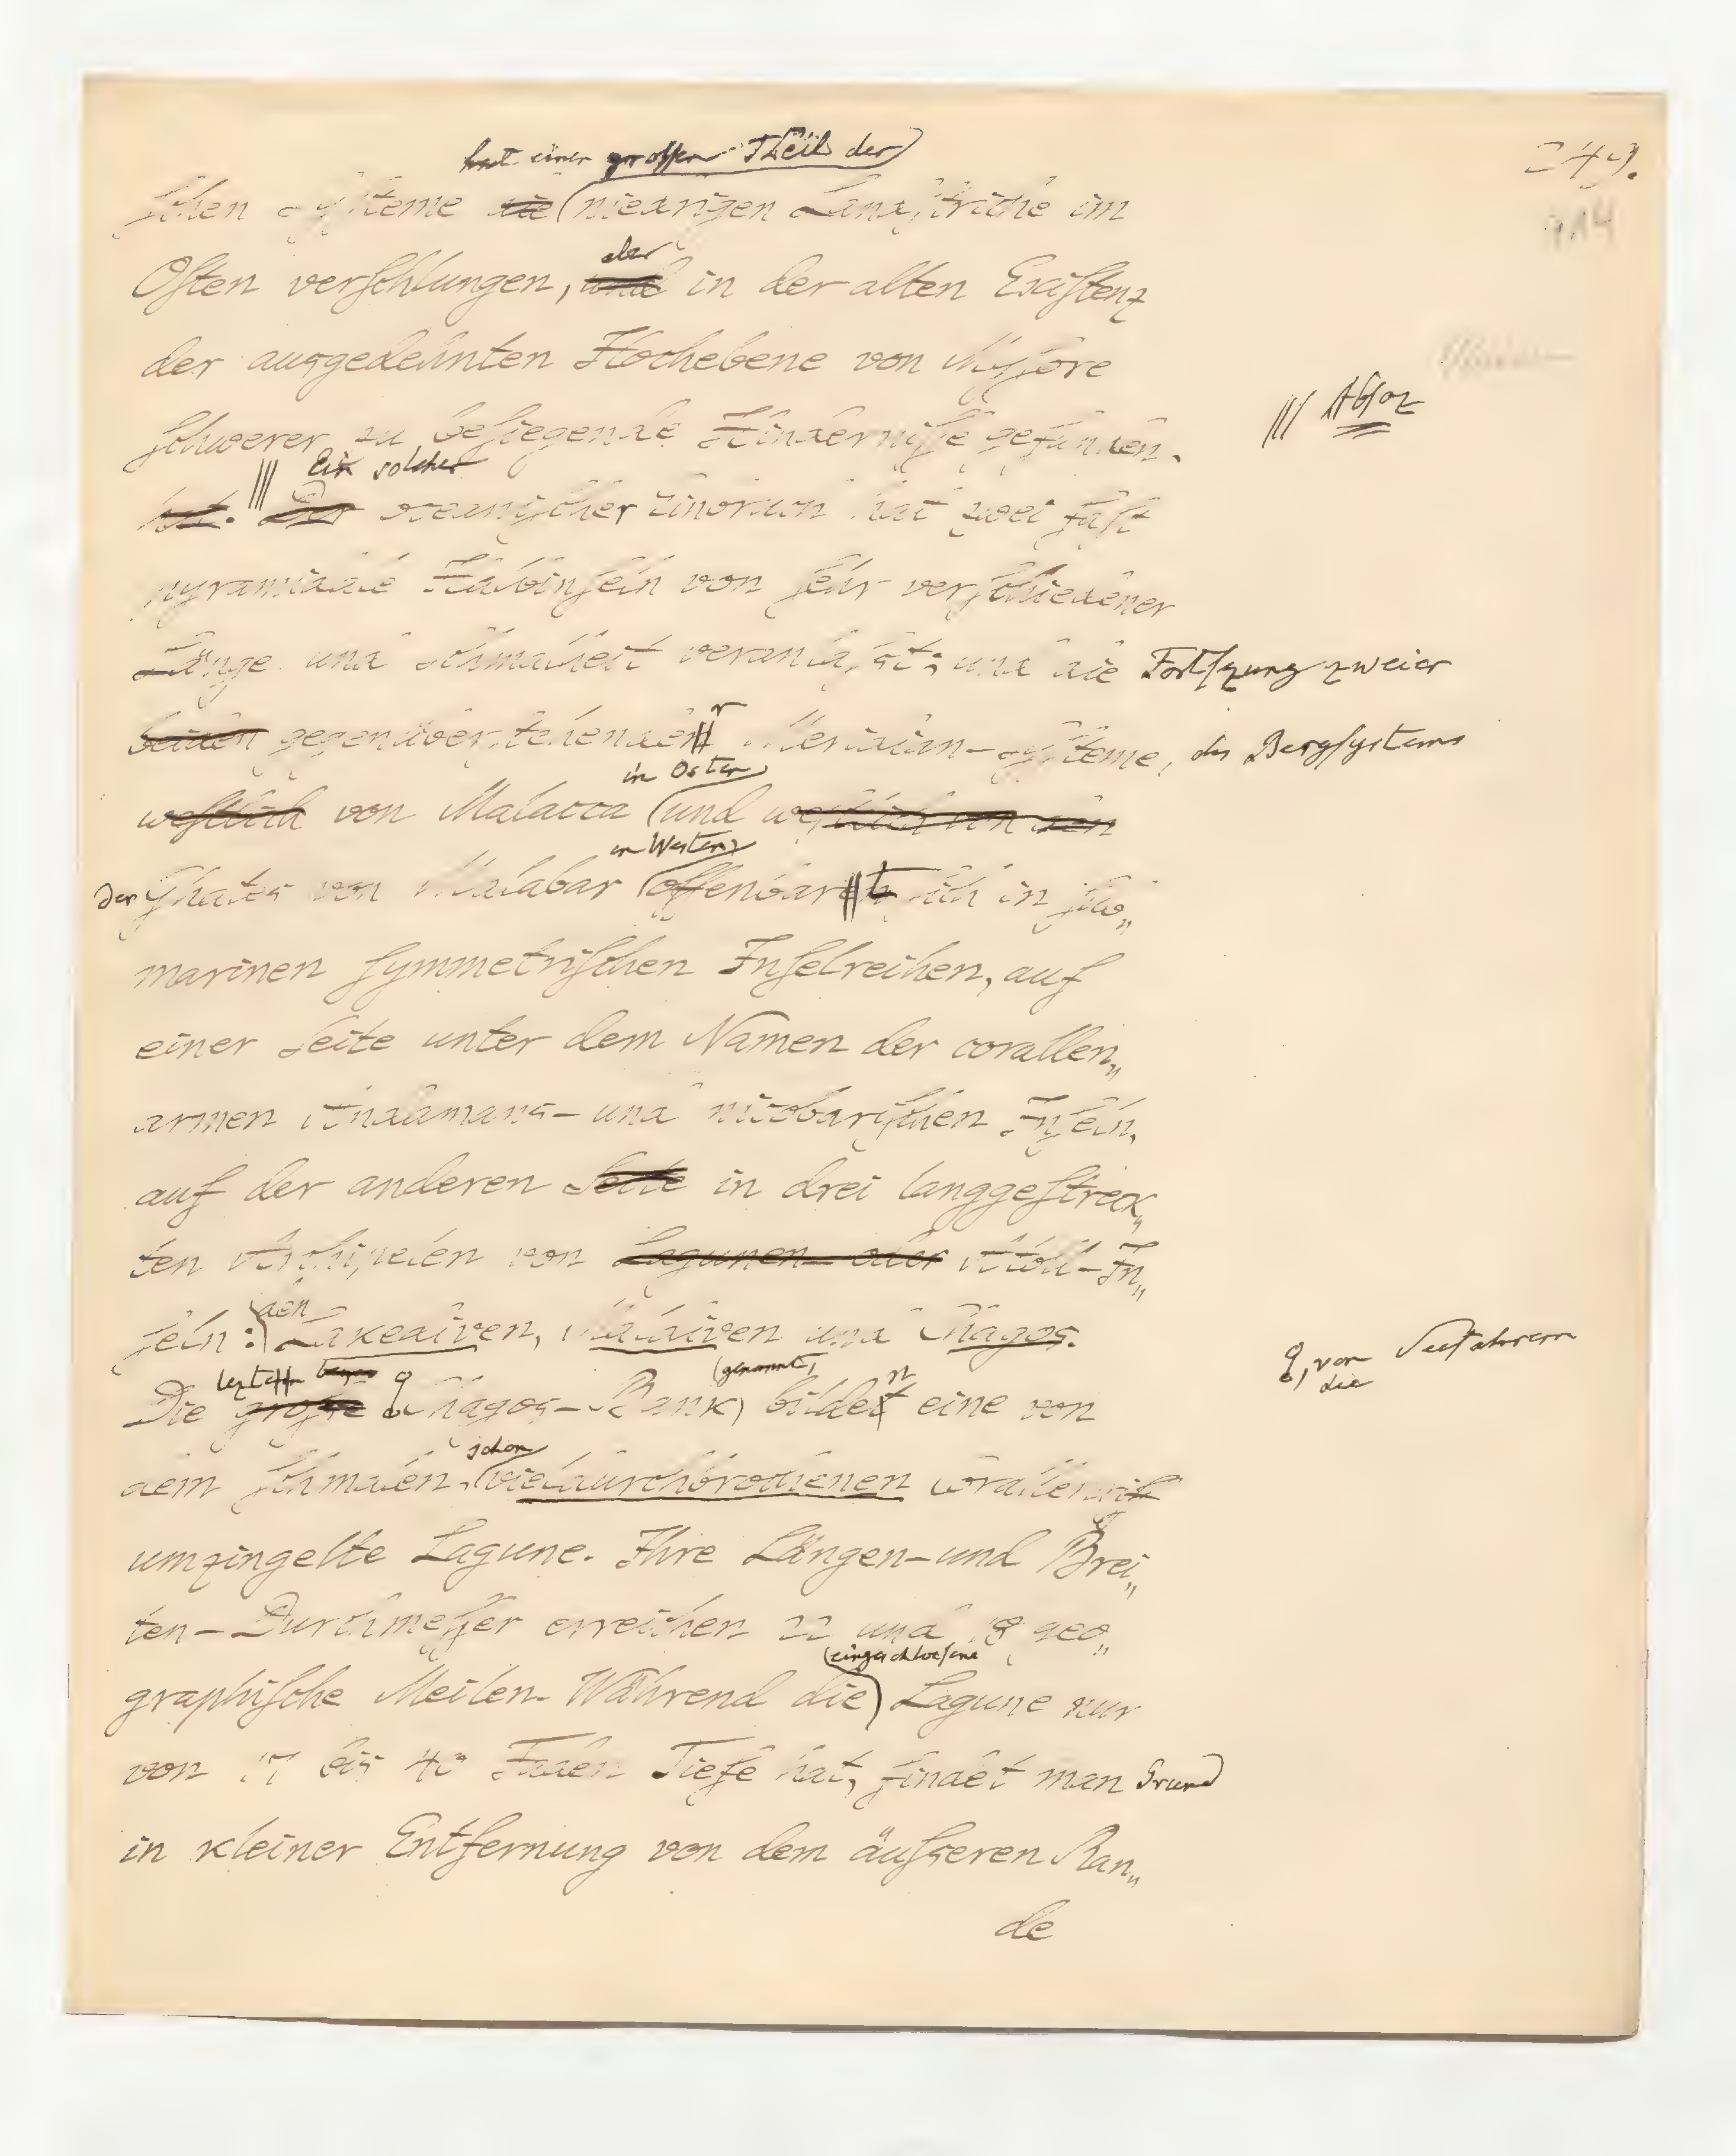 249.
hat einen grossen Theil der
schen Systeme die niedrigen Landstriche im
aber
Osten verschlungen, und in der alten Existenz
der ausgedehnten Hochebene von Mysore
||| Absaz
schwerer zu besiegende Hindernisse gefunden.
||| Ein solcher
hat. Der oceanischer Einbruch hat zwei fast
pyramidale Halbinseln von sehr verschiedener
Länge und Schmalheit veranlasst; und die Fortsezung zweier
beiden gegenüberstehenden r Meridian-Systeme, des Bergsystems
in Osten
westlich von Malacca und westlich von den
in Westen
der Ghates von Malabar offenbart sich in sub„
marinen symmetrischen Inselreihen, auf
einer Seite unter dem Namen der corallen„
armen Andamans- und nicobarischen Inseln,
auf der anderen Seite in drei langgestreck„
ten Archipelen von Lagunen- oder Atoll-In„
den
seln: Lakediven, Malediven und Chagos.
, von Seefahrern
die
leztere genannt, n
Die grosse Chagos-Bank bildet eine von
schon
dem schmalen, vieldurchbrochenen Corallenriff
umzingelte Lagune. Ihre Längen- und Brei„
ten-Durchmesser erreichen 22 und 18 geo„
eingeschlossene
graphische Meilen. Während die Lagune nur
von 17 bis 40 Faden Tiefe hat, findet man Grund
in kleiner Entfernung von dem äusseren Ran„
de